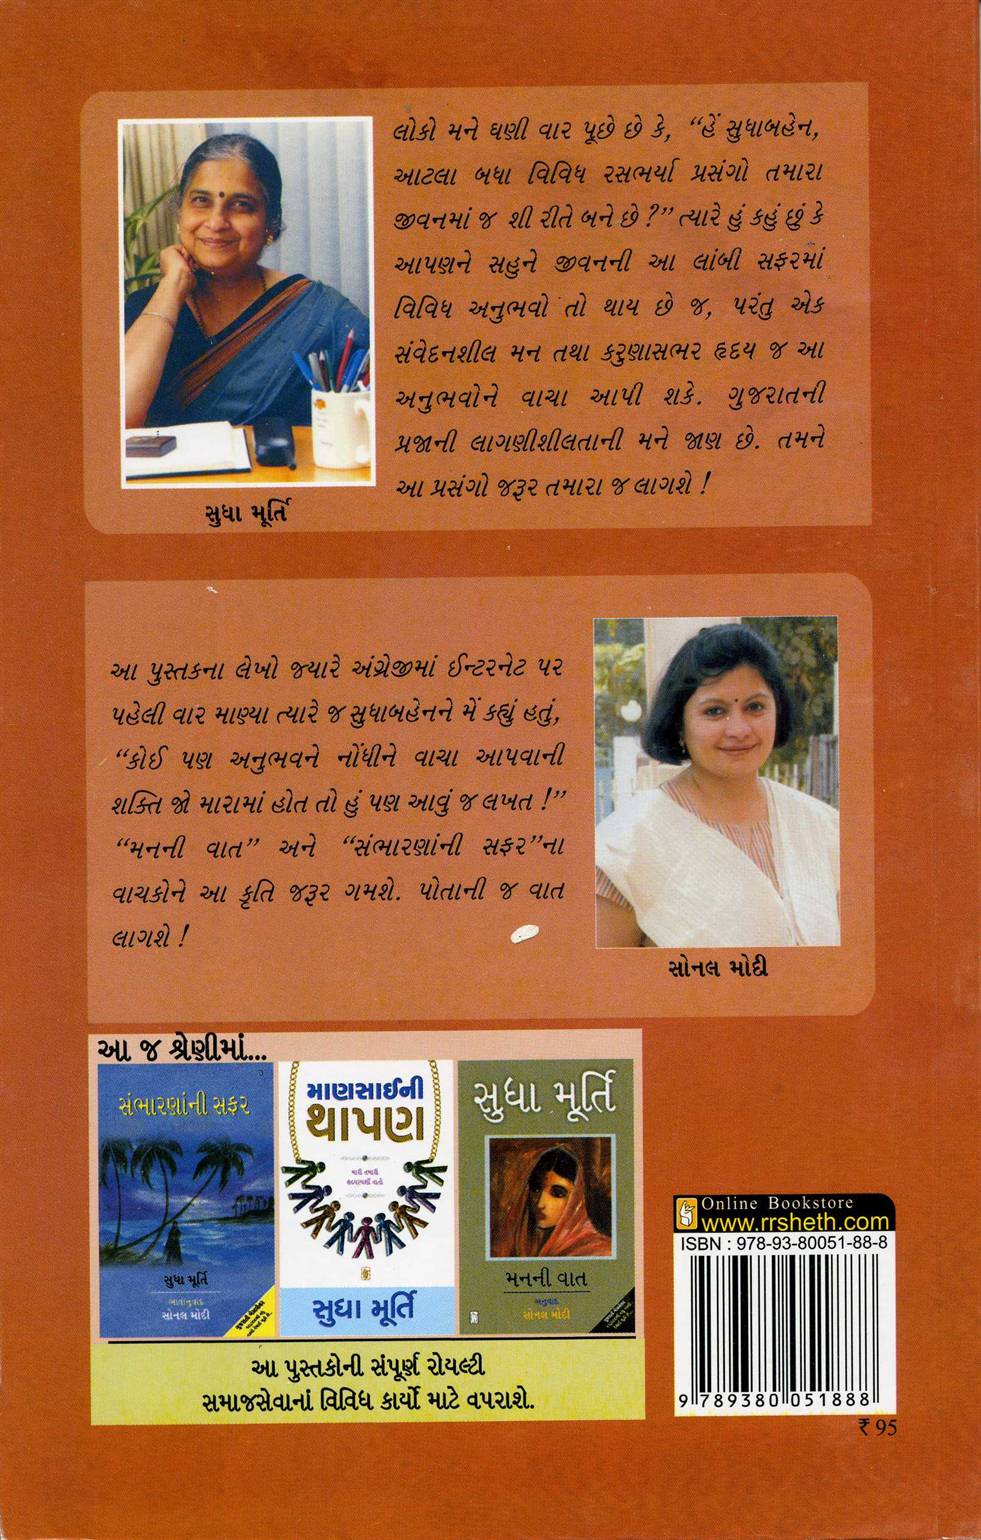 લોકો મને ઘણી વાર પૂછે છે કે, “હેં સુધાબહેન,
આટલા બધા વિવિધ રસભર્યા પ્રસંગો તમારા
જીવનમાં જ શી રીતે બને છે ?” ત્યારે હું કહું છું કે
આપણને સહુને જીવનની આ લાંબી સફરમાં
વિવિધ અનુભવો તો થાય છે જ, પરંતુ એક
સંવેદનશીલ મન તથા કરુણાસભર હૃદય જ આ
અનુભવોને વાચા આપી શકે. ગુજરાતની
પ્રજાની લાગણીશીલતાની મને જાણ છે. તમને
આ પ્રસંગો જરૂર તમારા જ લાગશે !
સુધા મૂર્તિ
આ પુસ્તકના લેખો જ્યારે અંગ્રેજીમાં ઈન્ટરનેટ પર
પહેલી વાર માણ્યા ત્યારે જ સુધાબહેનને મેં કહ્યું હતું,
“કોઈ પણ અનુભવને નોંધીને વાચા આપવાની
શક્તિ જો મારામાં હોત તો હું પણ આવું જ લખત !”
“મનની વાત” અને “સંભારણાંની સફર”ના
વાચકોને આ કૃતિ જરૂર ગમશે. પોતાની જ વાત
લાગશે !
સોનલ મોદી
આ જ શ્રેણીમાં...
સંભારણાંની સફર
સુધા મૂર્તિ
સોનલ મોદી
માણસાઈની
થાપણ
મારી તમારી
સુધા મૂર્તિ
સુધા મૂર્તિ
મનની વાત
અનુવાદ
સોનલ મોદી
આ પુસ્તકોની સંપૂર્ણ રોયલ્ટી
સમાજસેવાનાં વિવિધ કાર્યો માટે વપરાશે.
Online Bookstore
www.rrsheth.com
ISBN : 978-93-80051-88-8
9 789380 051888
₹ 95